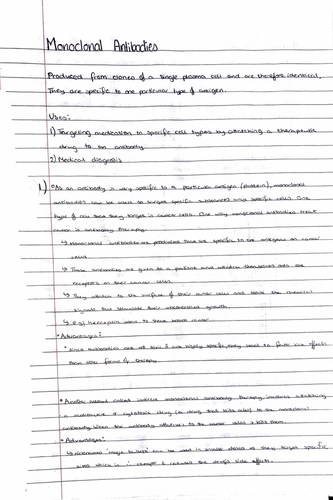 Monoclonal Antibodies
Produced from clones of a single plasma cell and are therefore identical.
They are specific to one particular type of antigen.
Uses:
1) Targeting medication to specific cell types by attaching a therapeutic
drug to an antibody
2) Medical diagnosis
1.) • As an antibody is very specific to a particular antigen (protein), monoclonal
antibodies can be used to target specific substances and specific cells. One
type of cell that they target is cancer cells. One way monoclonal antibodies treat
cancer is antibody therapy:
↳ Monoclonal antibodies are produced that are specific to the antigens on cancer
cells
↳ These antibodies are given to a patient and attach themselves onto the
receptors on their cancer cells.
↳ They attach to the surface of their cancer cells and block the chemical
signals that stimulate their uncontrolled growth.
↳ e.g) herceptin used to treat breast cancer
• Advantages:
• Since antibodies are not toxic & are highly specific, they lead to fewer side effects
than other forms of therapy.
• Another method called indirect monoclonal antibody therapy, involves attaching
a radioactive or cytotoxic drug (a drug that kills cells) to the monoclonal
antibody. When the antibody attaches to the cancer cells it kills them.
• Advantages:
↳ can be used in smaller doses as they target specific
sites which is cheaper & reduces the drug's side effects.